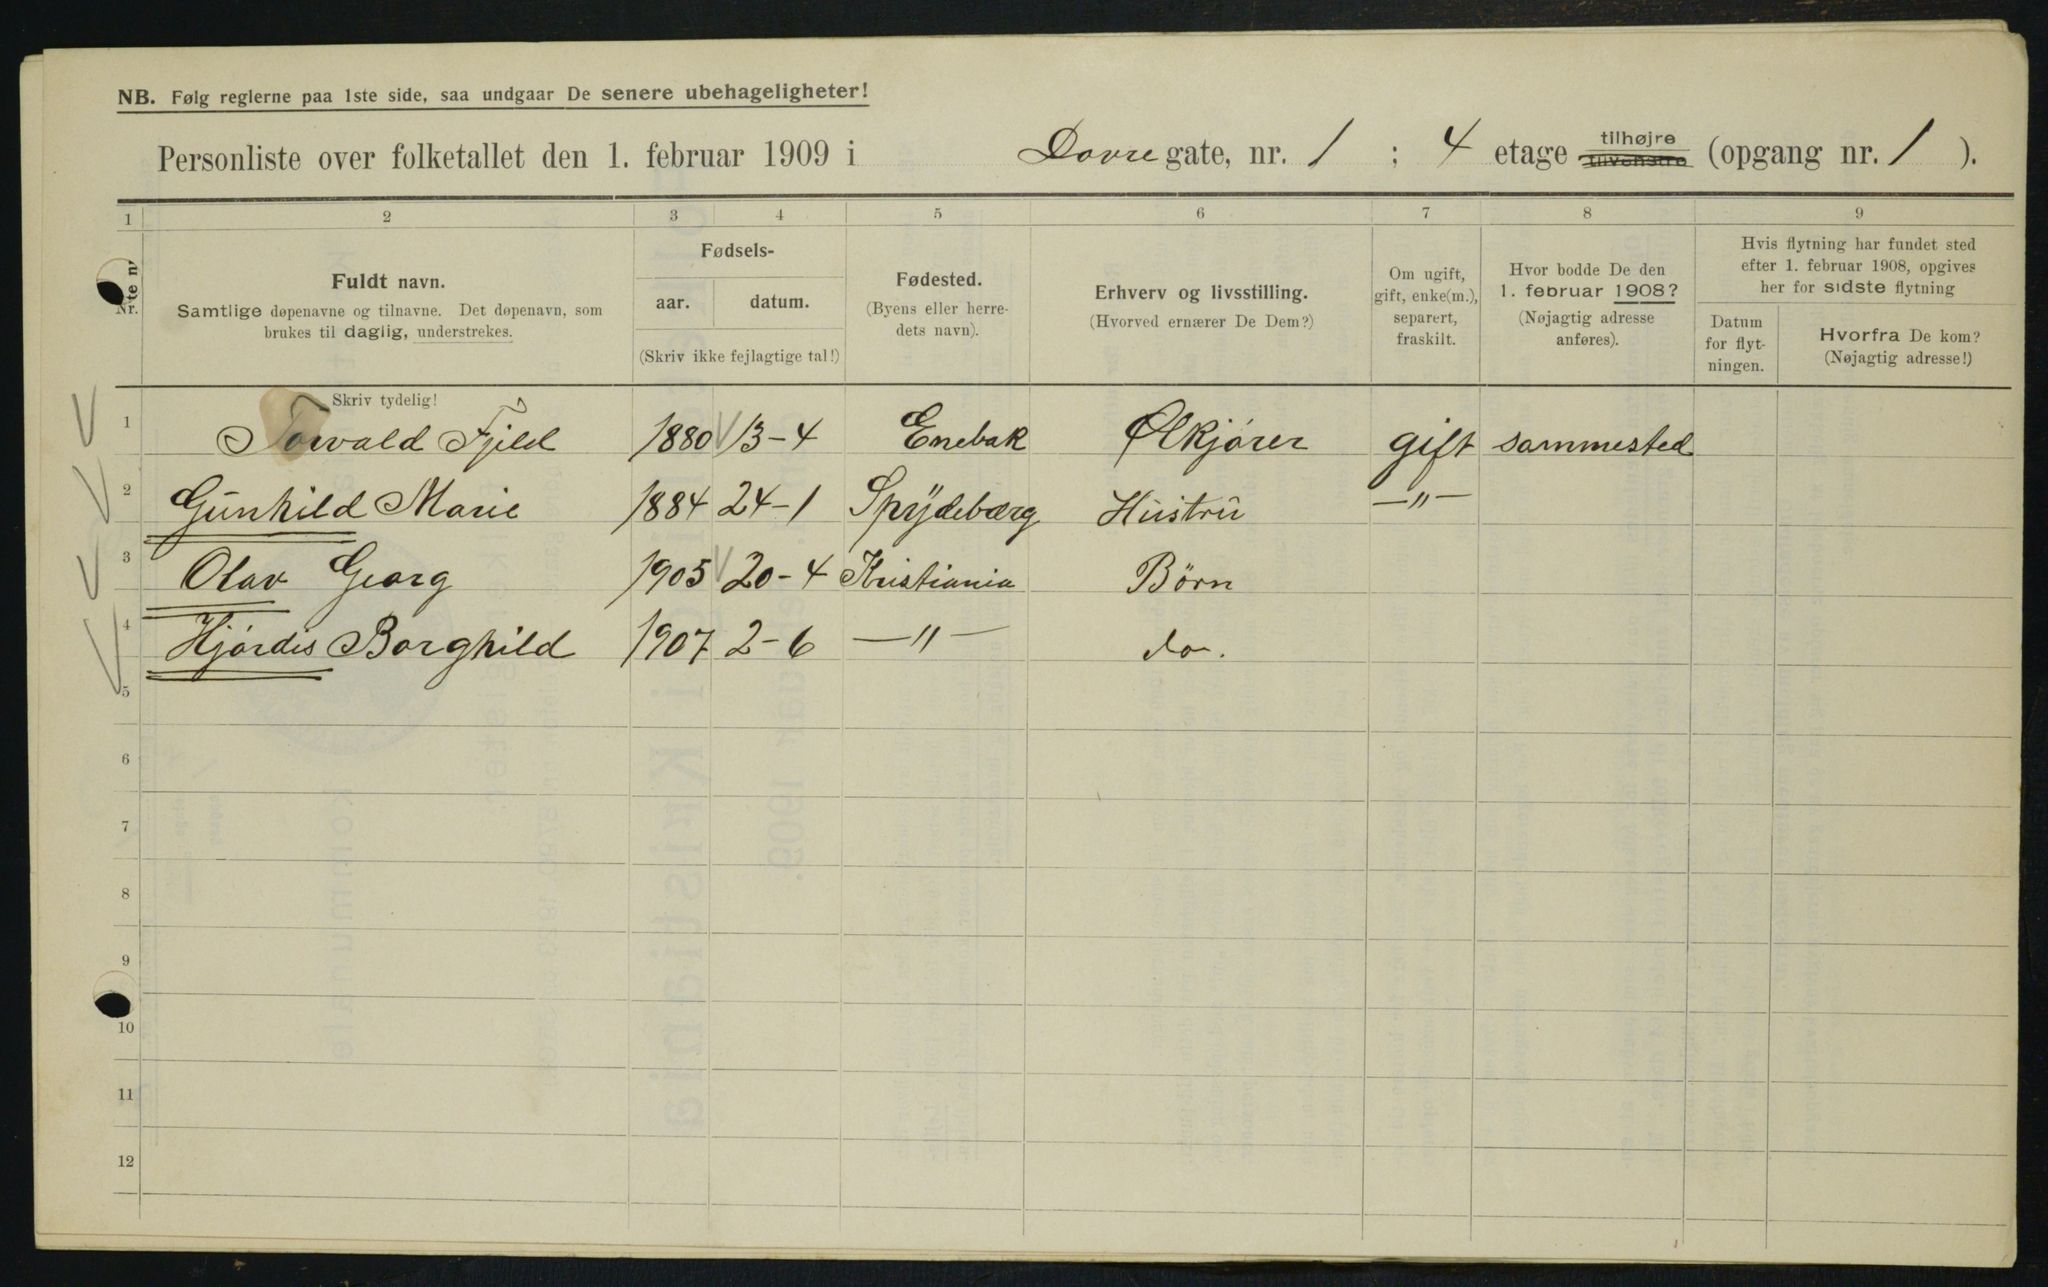 NB. Følg reglerne paa 1ste side, saa undgaar De senere ubehageligheter!
Personliste over folketallet den 1. februar 1909 i Dovre gate, nr. 1 ; 4 etage tilhøjre tilvenstre (opgang nr. 1 ).
1 2 3 4 5 6 7 8 9
Nr.
Fuldt navn.
Samtlige døpenavne og tilnavne. Det døpenavn, som
brukes til daglig, understrekes.
Fødsels-
aar. datum.
(Skriv ikke fejlagtige tal!)
Fødested.
(Byens eller herre-
dets navn).
Erhverv og livsstilling.
(Hvorved ernærer De Dem?)
Om ugift,
gift, enke(m.),
separert,
fraskilt.
Hvor bodde De den
1. februar 1908?
(Nøjagtig adresse
anføres).
Hvis flytning har fundet sted
efter 1. februar 1908, opgives
her for sidste flytning
Datum
for flyt-
ningen.
Hvorfra De kom?
(Nøjagtig adresse!)
Skriv tydelig!
1 Torvald Fjeld 1880 13-4 Enebak Ølkjører gift sammested
2 Gunhild Marie 1884 24-1 Spydebærg Hustru —"—
3 Olav Georg 1905 20-4 Kristiania Børn
4 Hjørdis Borghild 1907 2-6 —"— do.
5
6
7
8
9
10
11
12